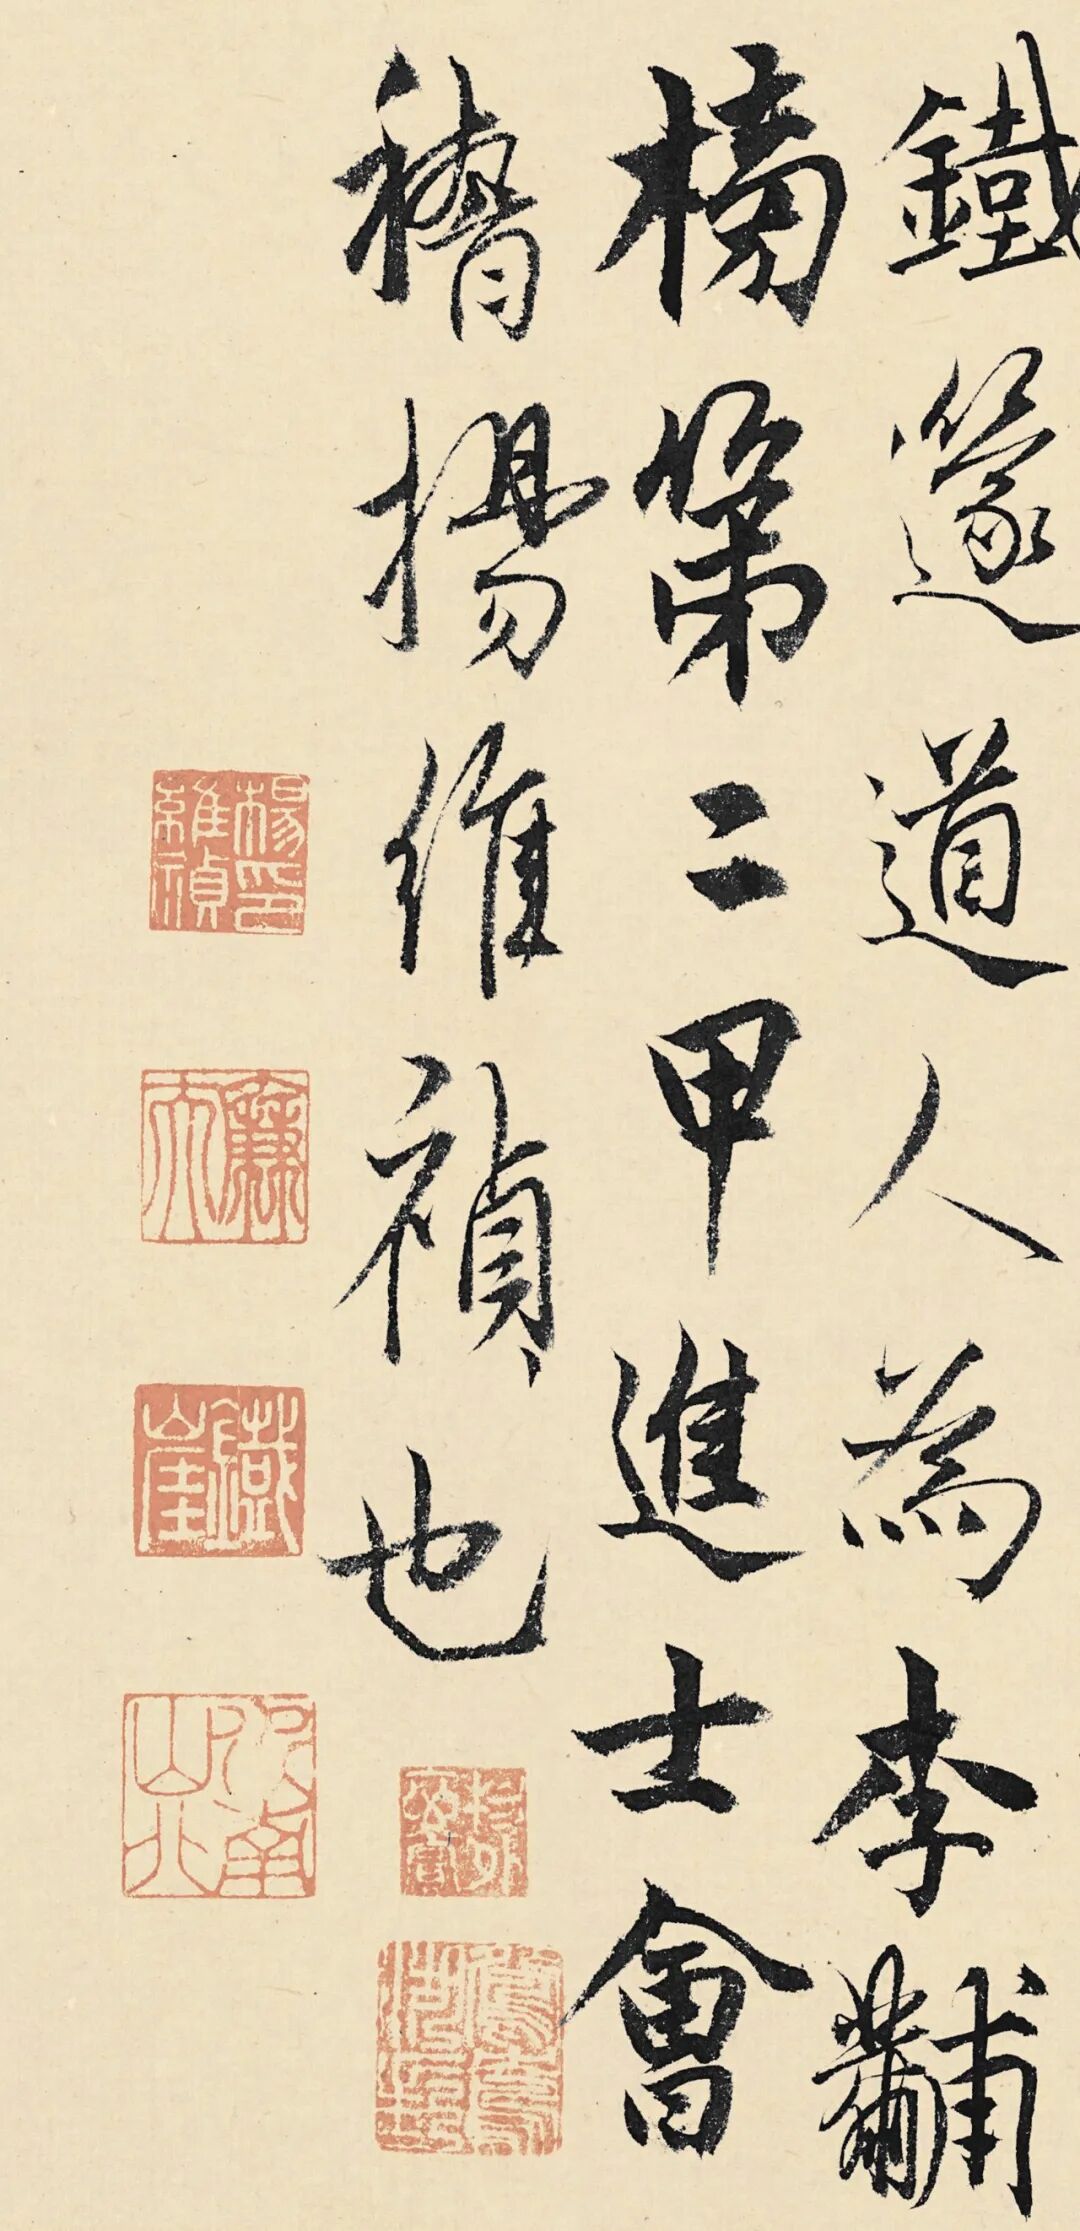 鐵篴道人為李黼
榜第二甲進士會
稽楊維禎也
楊印
維禎
廉夫
鐵崖